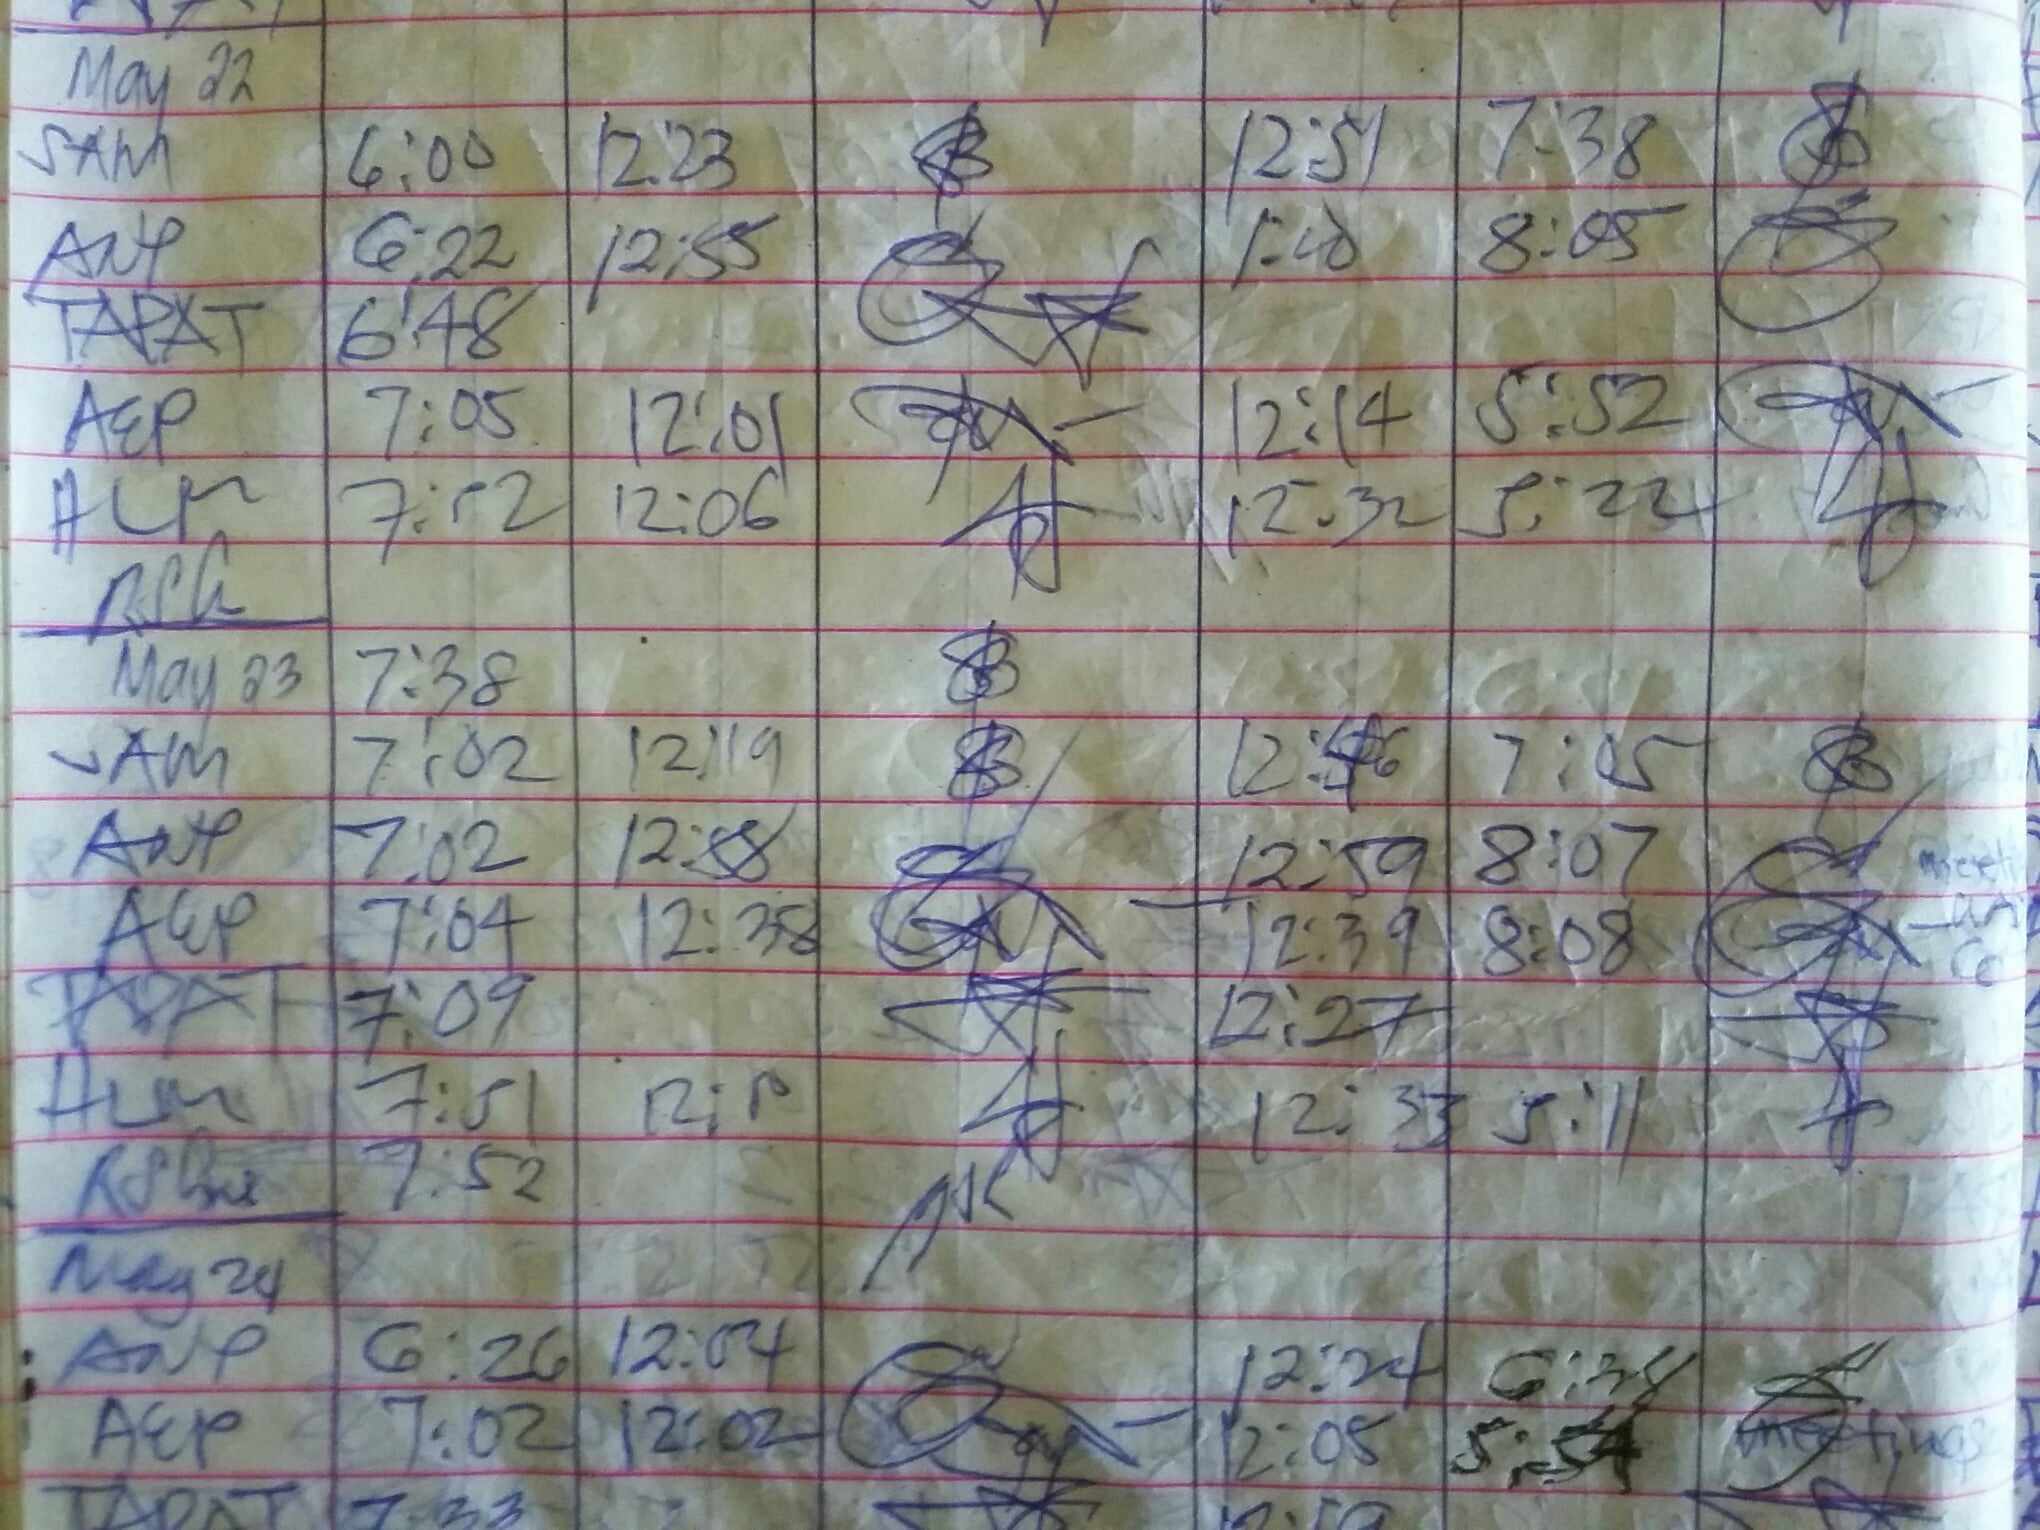 May 22
SAM 6:00 12:23 12:51 7:38
ANP 6:22 12:55 1:10 8:05
TAPAT 6:48
AEP 7:05 12:01 12:14 5:52
HLM 7:52 12:06 12:32 5:22
May 23 7:38
SAM 7:02 12:19 7:05
ANP 7:02 12:58 12:59 8:07
AEP 7:04 12:38 12:39 8:08
TAPAT 7:09 12:27
HLM 7:51 12:33 5:11
7:52
May 24
ANP 6:26 12:04 12:24
AEP 7:02 12:02 12:05 5:54 meetings
TAPAT 7:33